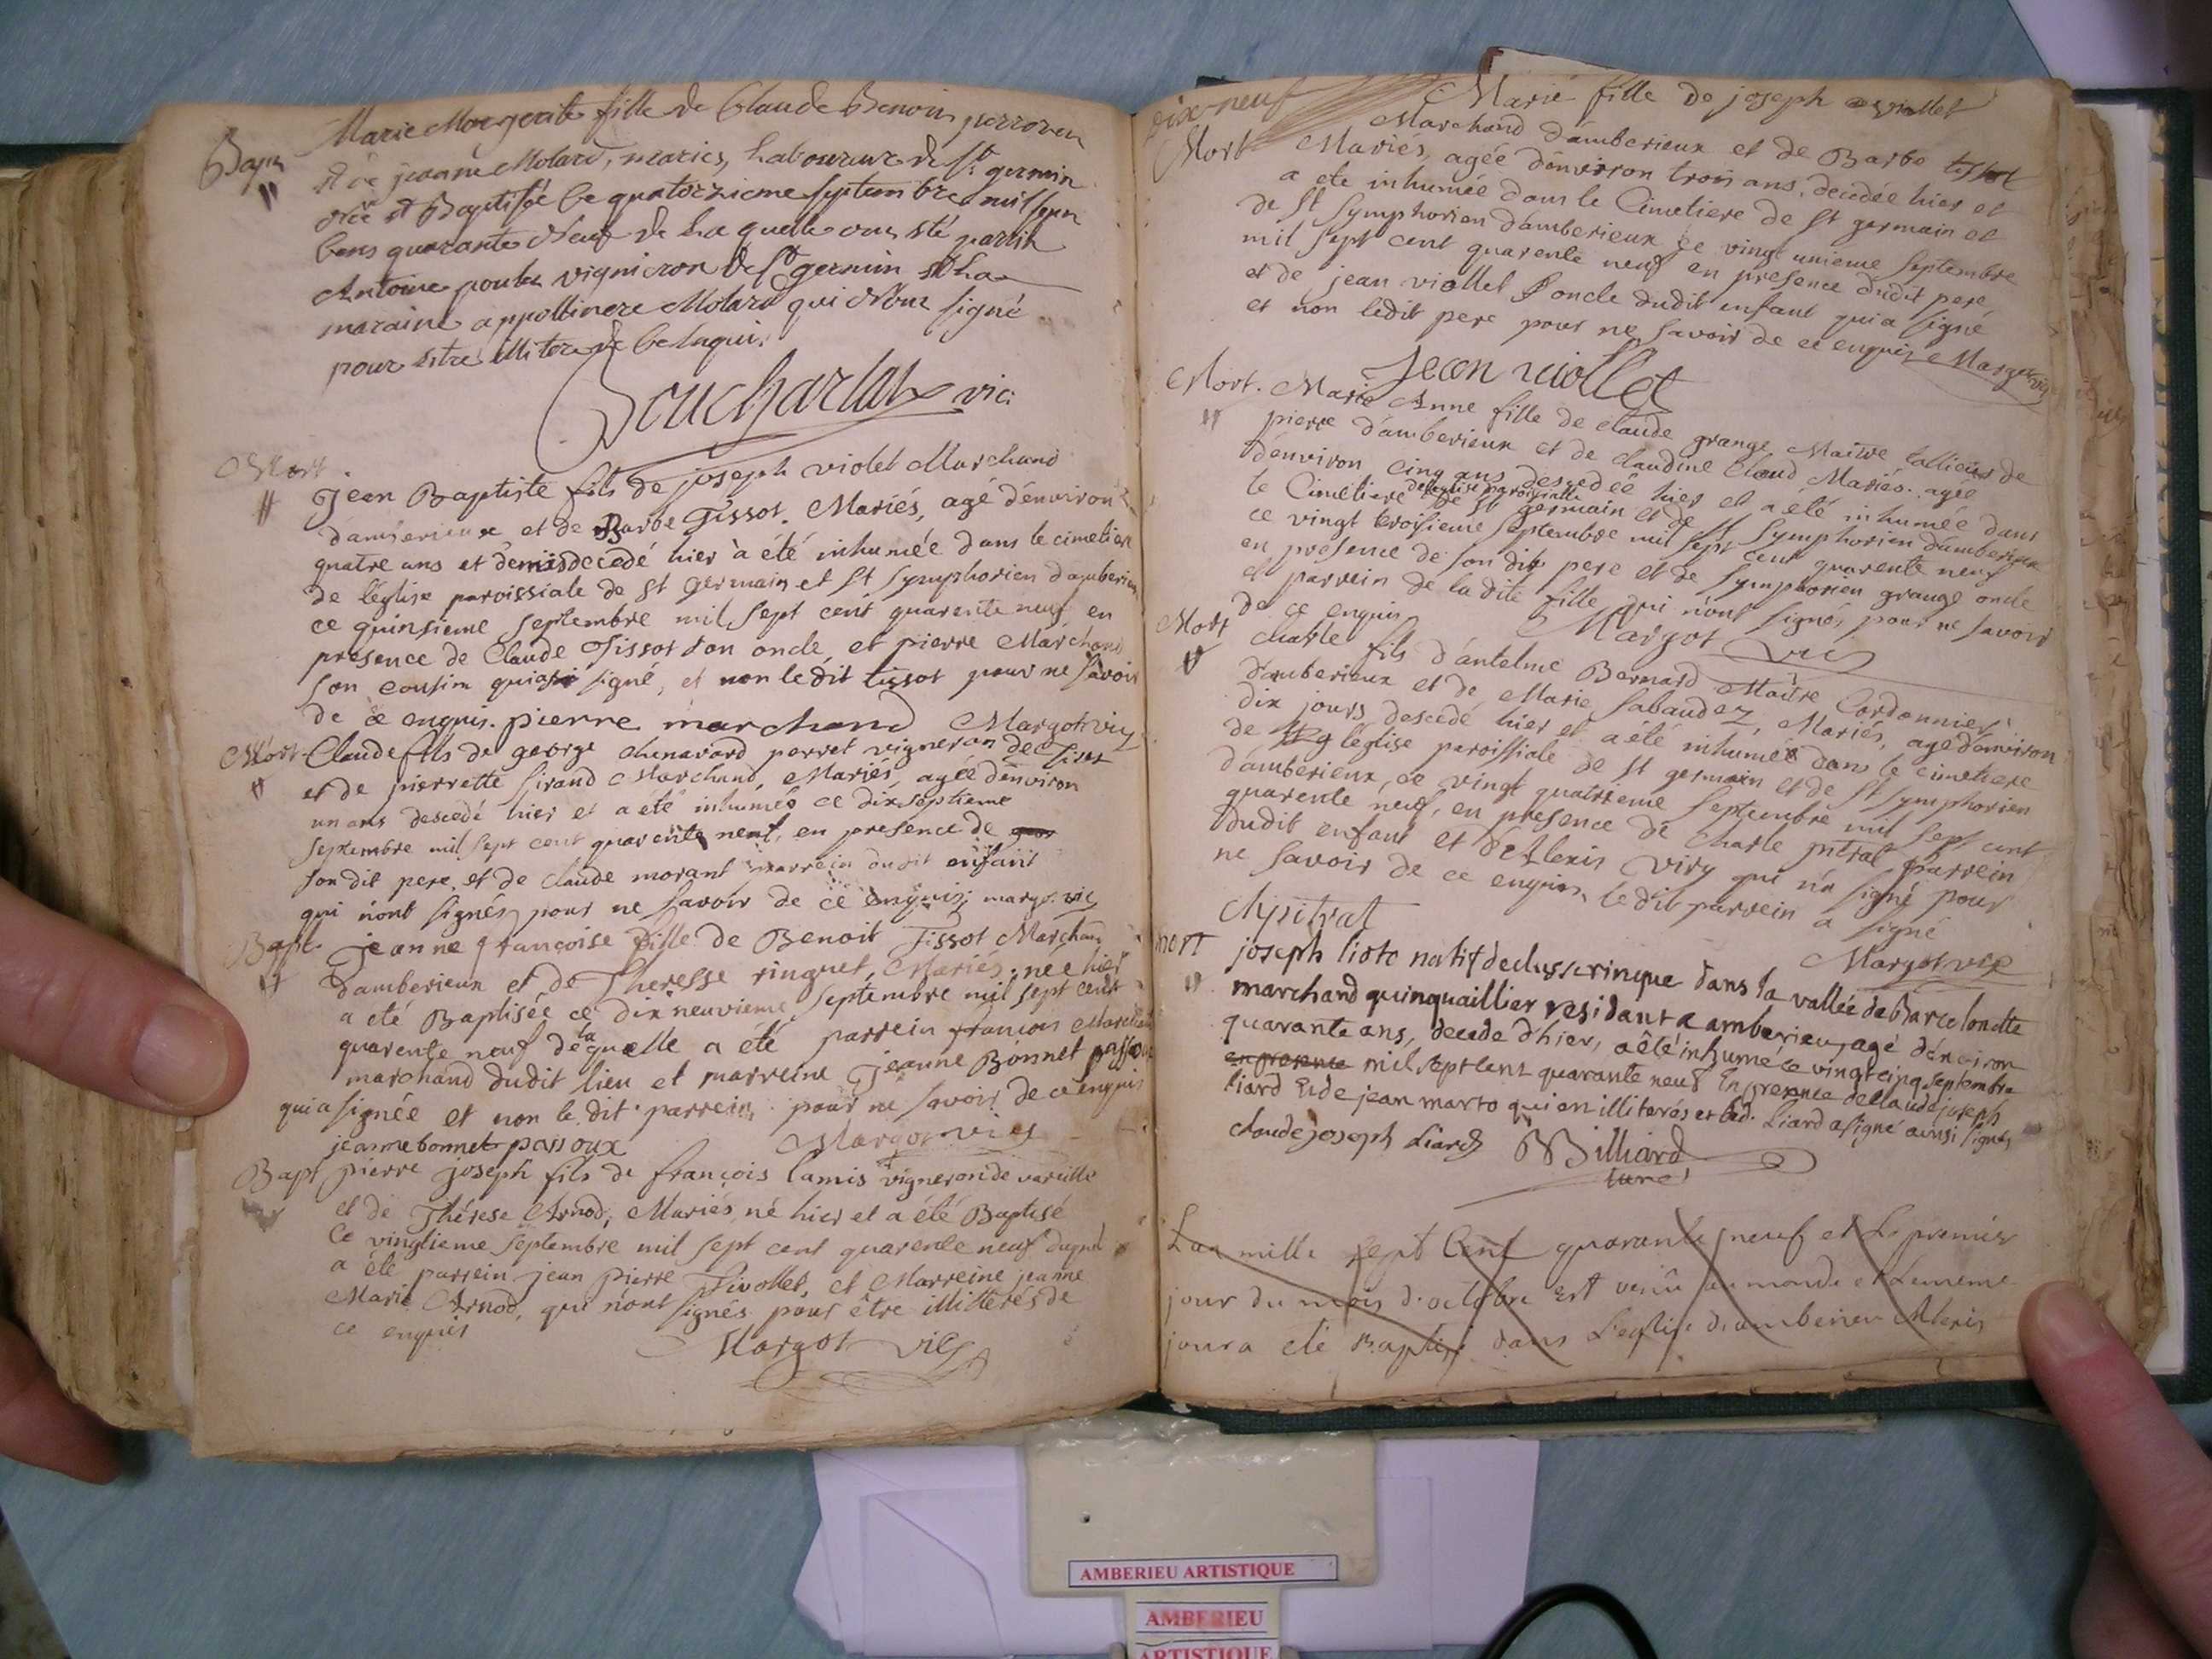 Bapt Marie Margerite fille de Claude Benoin perroven
et de jeanne Molard, maries, habourur de St germin
Née et Baptisée le quatorzieme septembre mil sepn
cens quarante Neuf de la quelle ons sté parrin
Antoine vigniron de St germin et la
maraine appollinere Molard qui Nons signé
pour estre illitere de ce enqui.
Boucharlat vic:
Mort.
Jean Baptiste fils de joseph violet Marchand
d'amberieux et de Barbe Tissot. Mariés, agé d'environ
quatre ans et demis decedé hier à été inhumée dans le cimetiere
de l'église paroissiale de St Germain et St Symphorien d'amberieux
ce quinsieme septembre mil sept cent quarente neuf en
presence de Claude Tissot son oncle, et pierre Marchand
son cousin qui a signé, et non ledit tissot pour ne savoir
de ce enquis. pierre marchand Margot vic
Mort. Claude fils de george chenavard perret vigneron de Tiret
et de pierrette Girand Marchand, Mariés, agée d'environ
un ans descedé hier et a été inhumés ce dixseptieme
septembre mil sept cent quarente neuf, en presence de
son dit pere, et de claude morant parrein dudit enfant
qui n'ont signés pour ne savoir de ce enquis; margo. vic
Bapt. jeanne françoise fille de Benoit Tissot Marchand
d'amberieux et de Theresse ringuet, Mariés, née hier
a été Baptisée ce dix neuvieme septembre mil sept cent
quarente neuf de la quelle a été parrein francois Marchand
marchand dudit lieu et marreine jeanne Bonnet passoux
qui a signée et non le dit parrein pour ne savoir de ce enquis
jeanne bonnet passoux Margot vic
Bapt pierre joseph fils de françois lamis vigneron de vareille
et de Thérese Arnod, Mariés, né hier et a été Baptisé
Ce vingtieme septembre mil sept cent quarente neuf duquel
a été parrein jean pierre Tivollet, et Marreine jeanne
Marie Arnod, qui n'ont signés pour être illitterés de
ce enquis
Margot vic
dix-neuf
Mort Marie fille de joseph viollet
Marchand d'amberieux et de Barbe tissot
Mariés, agée d'environ trois ans, decedée hier et
a ete inhumée dans le Cimetiere de St germain et
de St Symphorien d'amberieux ce vingt unieme septembre
mil sept cent quarente neuf en presence dudit pere,
et de jean viollet oncle dudit enfant qui a signé
et non ledit pere pour ne savoir de ce enquis Margot vic
jean viollet
Mort. Marie Anne fille de claude grange Maitre tallieur de
pierre d'amberieux et de claudine Claud Mariés. agée
d'environ cinq ans descedée hier et a été inhumée dans
le Cimetiere de l'eglise paroissialle de St germain et de St Symphorien d'amberieux
ce vingt troisieme septembre mil sept cent quarente neuf
en presence de son dit pere et de Symphorien grange oncle
et parrein de la dite fille qui n'ont signés pour ne savoir
de ce enquis Margot vic
Mort Charle fils d'antelme Bernard Maitre Cordonnier
d'amberieux et de Marie Sabaudez, Mariés, agé d'environ
dix jours descedé hier et a été inhumée dans le cimetiere
de l'église paroissiale de St germain et de St Symphorien
d'amberieux, ce vingt quatrieme septembre mil sept cent
quarente neuf, en presence de Charle pitrat parrein
dudit enfant et d'Alexis Viry qui n'a signé pour
ne savoir de ce enquis, le dit parrein a signé
Chpitrat Margot vic
mort joseph natif de dans la vallée de Barcelonette
marchand quinquaillier residant a amberieu, agé d'environ
quarante ans, decede d'hier, a été inhumé ce vingt cinq septembre
en presence mil sept cent quarante neuf En presence de claude joseph
liard Et de jean marto qui on illiterés et led. Liard a signé ainsi signés
claude joseph Liard Billiard
curé
Lan mille sept Cent quarante neuf et le premier
jour du mois d'octobre est venu au monde et le meme
jour a été Baptisé dans L'eglise d'amberieu Alexis
AMBERIEU ARTISTIQUE
AMBERIEU
ARTISTIQUE